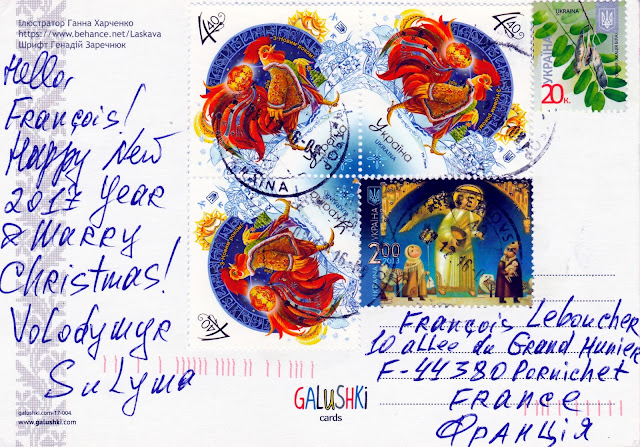 Ілюстратор Ганна Харченко
https://www.behance.net/Laskava
Шрифт Генадій Заречнюк
Hello,
François!
Happy New
2017 Year
& Marry
Christmas!
Volodymyr
Sulyma
4,40
4,40
4,40
З Новим роком!
З Новим роком!
З Новим роком!
Україна
UKRAINA
УКРАЇНА
UKRAINA
20к.
УКРАЇНА
UKRAINA
2.00
2013
François Leboucher
10 allée du Grand Hunier
F-44380 Pornichet
France
Франція
GALUSHKi
cards
galushki.com-17-004
www.galushki.com